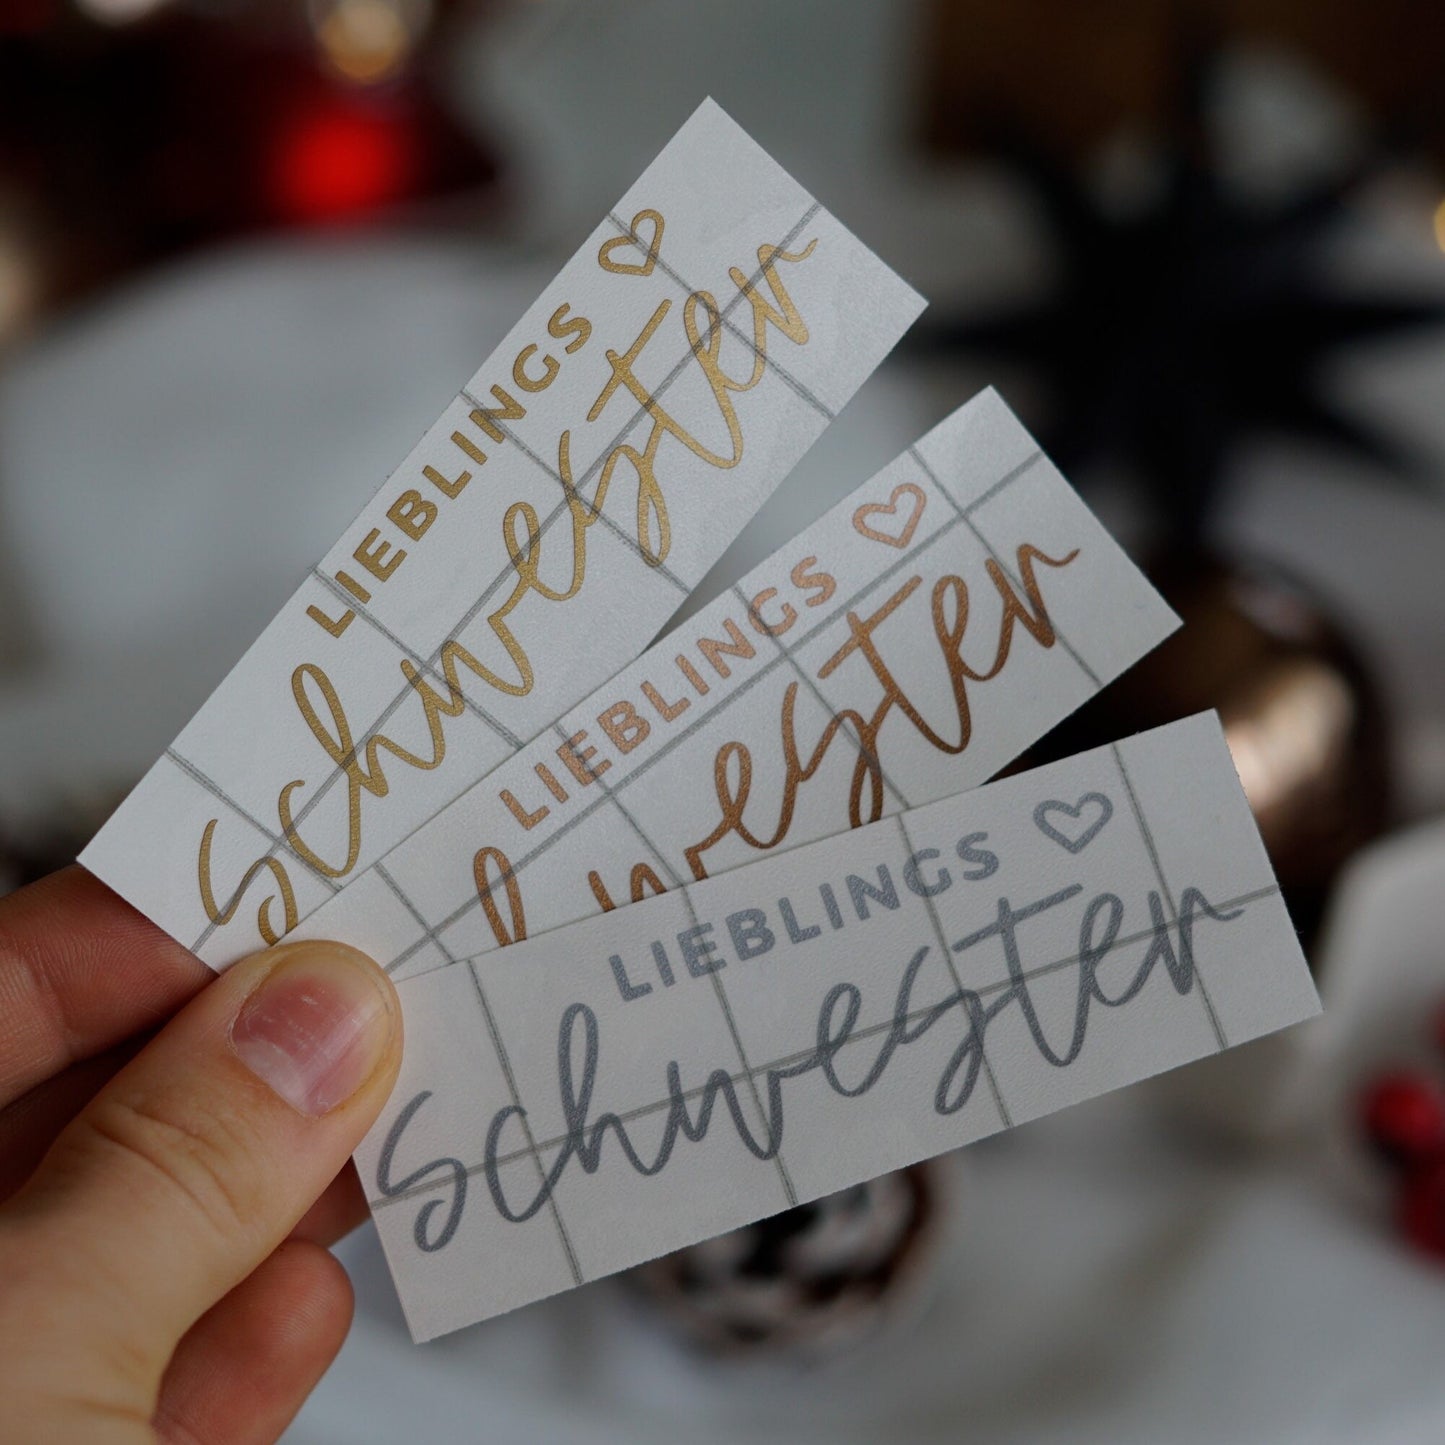 LIEBLINGS
Schwester
LIEBLINGS
Schwester
LIEBLINGS
Schwester